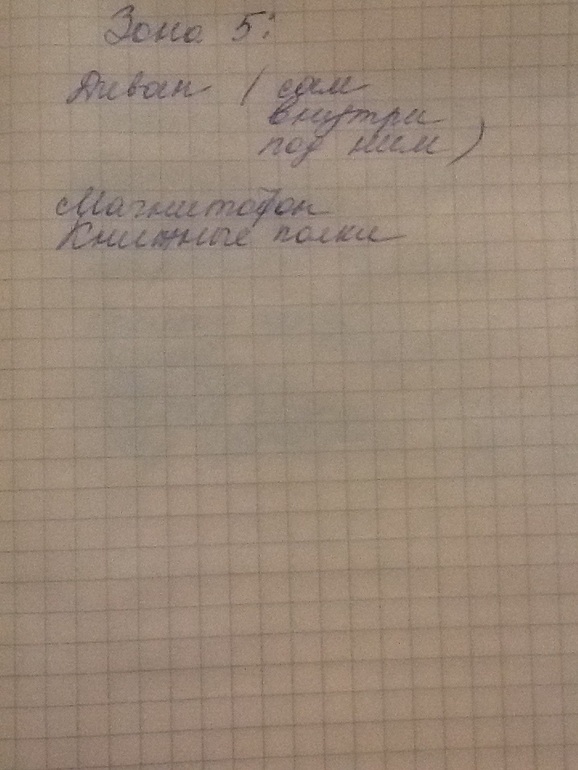 Зона 5:
Диван ( сам
внутри
под ним )
Магнитофон
Книжные полки